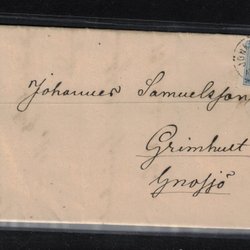 Johannes Samuelsson
Grimhult
Gnosjö